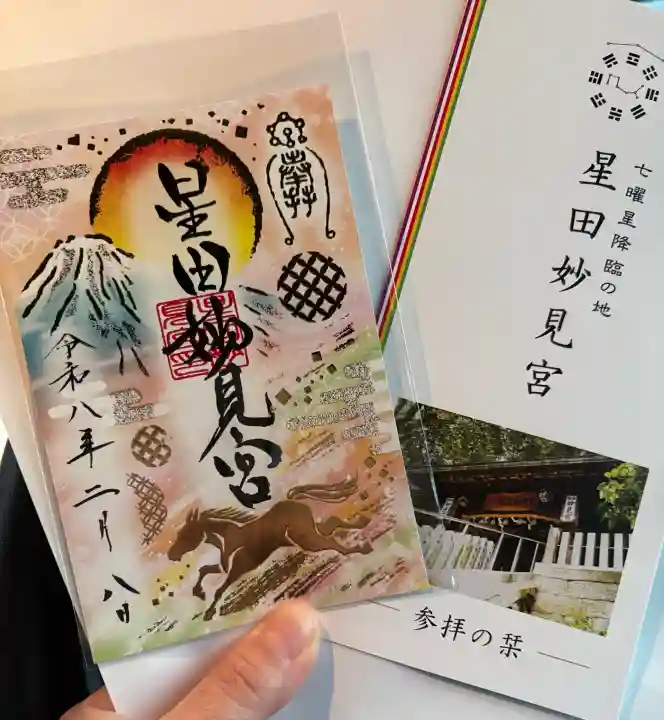 星田妙見宮
令和八年二月八日
七曜星降臨の地
星田妙見宮
参拝の栞